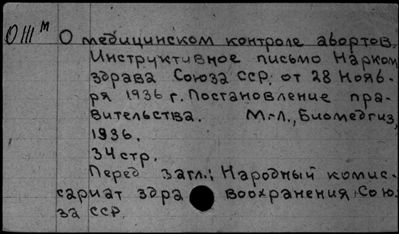 О III м
О медицинском контроле абортов.
Инструктивное письмо Нарком
здрава Союза ССР. от 28 Нояб-
ря 1936 г. Постановление пра-
вительства. М.-Л., Биомедгиз,
1936.
34 стр.
Перед загл.: Народный комис-
сариат здра воохранения Сою
за ССР.